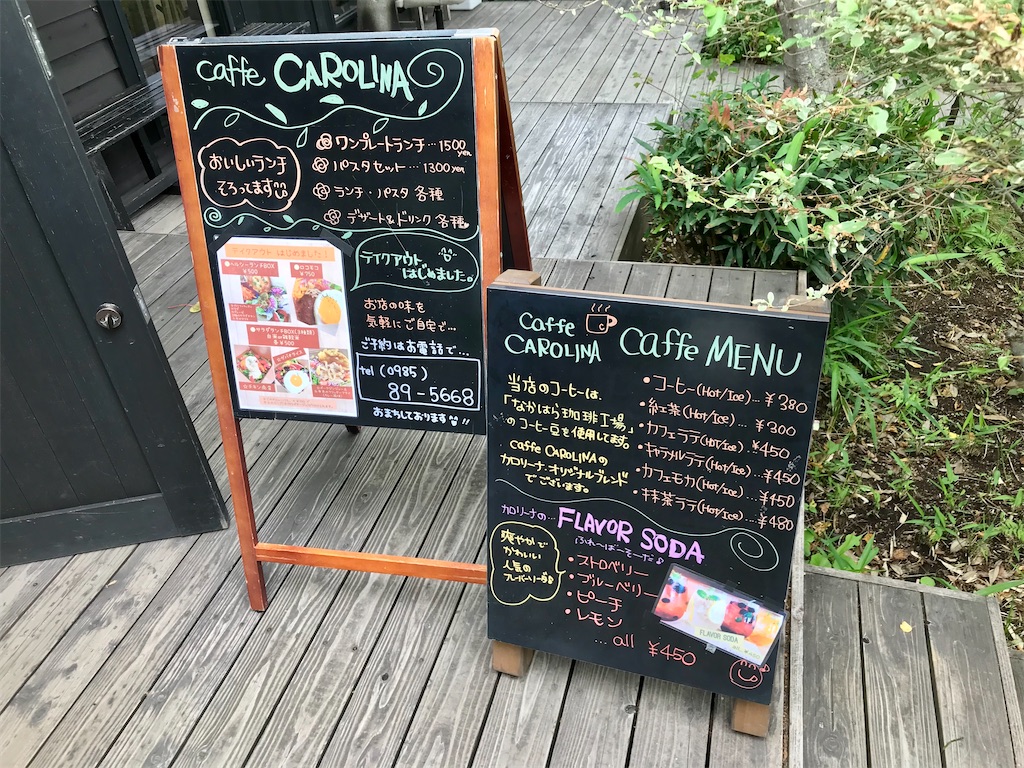 caffe CAROLINA
おいしいランチ
そろってます
ワンプレートランチ…1500yen
パスタセット…1300yen
ランチ・パスタ 各種
デザート&ドリンク 各種
テイクアウト
はじめました。
お店の味を
気軽にご自宅で…
ご予約はお電話で…
tel (0985)
89-5668
おまちしております!!
テイクアウト はじめました!
ヘルシーランチBOX
¥500
ロコモコ
¥750
Caffe
CAROLINA
Caffe MENU
当店のコーヒーは、
「なかはら珈琲工場」
のコーヒー豆を使用してます。
Caffe CAROLINAの
カロリーナ・オリジナルブレンド
でございます。
・コーヒー(Hot/Ice)…¥380
・紅茶(Hot/Ice)…¥300
・カフェラテ(Hot/Ice)…¥450
・キャラメルラテ(Hot/Ice)…¥450
・カフェモカ(Hot/Ice)…¥450
・抹茶ラテ(Hot/Ice)…¥480
カロリーナの…FLAVOR SODA
ふれーばーそーだ♪
爽やかで
かわいい
人気の
フレーバーソーダ
・ストロベリー
・ブルーベリー
・ピーチ
・レモン
…all ¥450
FLAVOR SODA